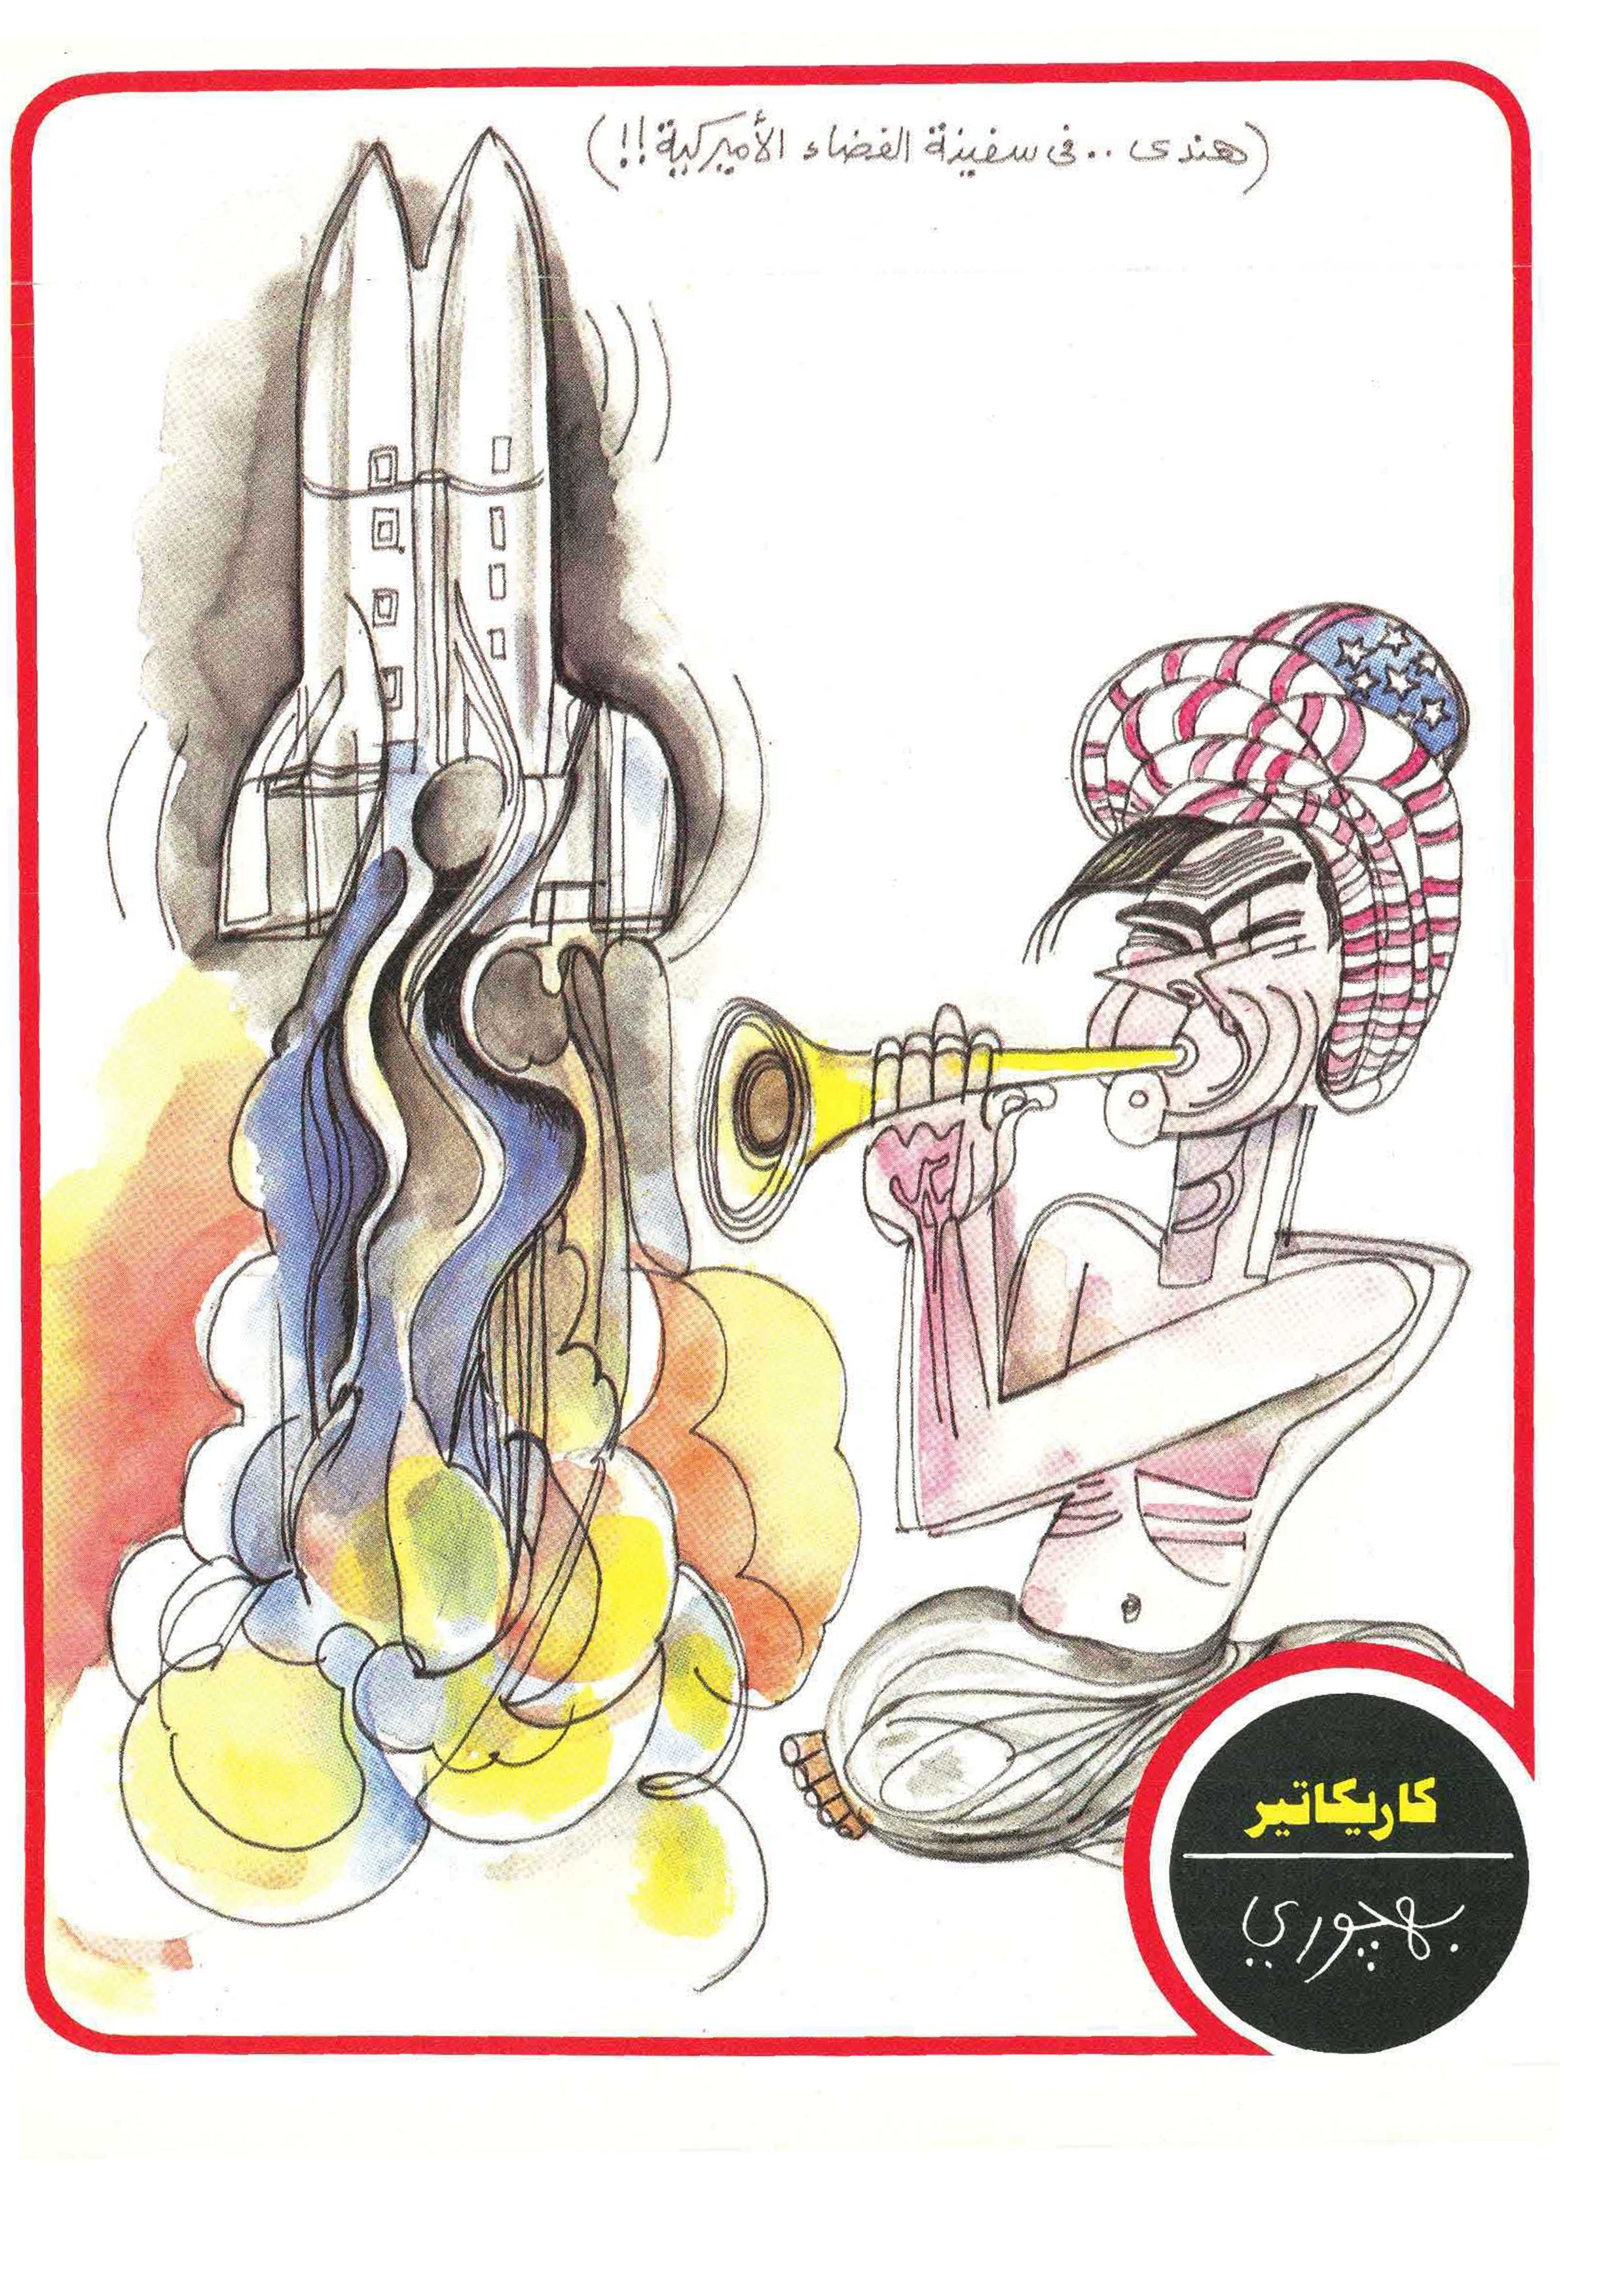 (هندى .. فى سفينة الفضاء الأميركية !!)
كاريكاتير
بهچوري